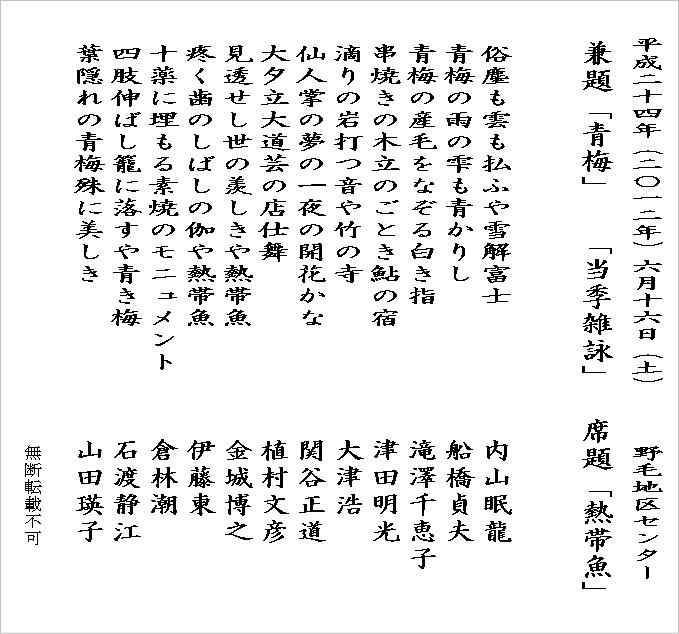 平成二十四年(二〇一二年)六月十六日(土) 野毛地区センター
兼題「青梅」 「当季雑詠」 席題「熱帯魚」
俗塵も雲も払ふや雪解富士 内山眠龍
青梅の雨の雫も青かりし 船橋貞夫
青梅の産毛をなぞる白き指 滝澤千恵子
串焼きの木立のごとき鮎の宿 津田明光
滴りの岩打つ音や竹の寺 大津浩
仙人掌の夢の一夜の開花かな 関谷正道
大夕立大道芸の店仕舞 植村文彦
見透せし世の羨しきや熱帯魚 金城博之
疼く歯のしばしの伽や熱帯魚 伊藤東
十薬に埋もる素焼のモニュメント 倉林潮
四肢伸ばし籠に落すや青き梅 石渡静江
葉隠れの青梅殊に美しき 山田瑛子
無断転載不可